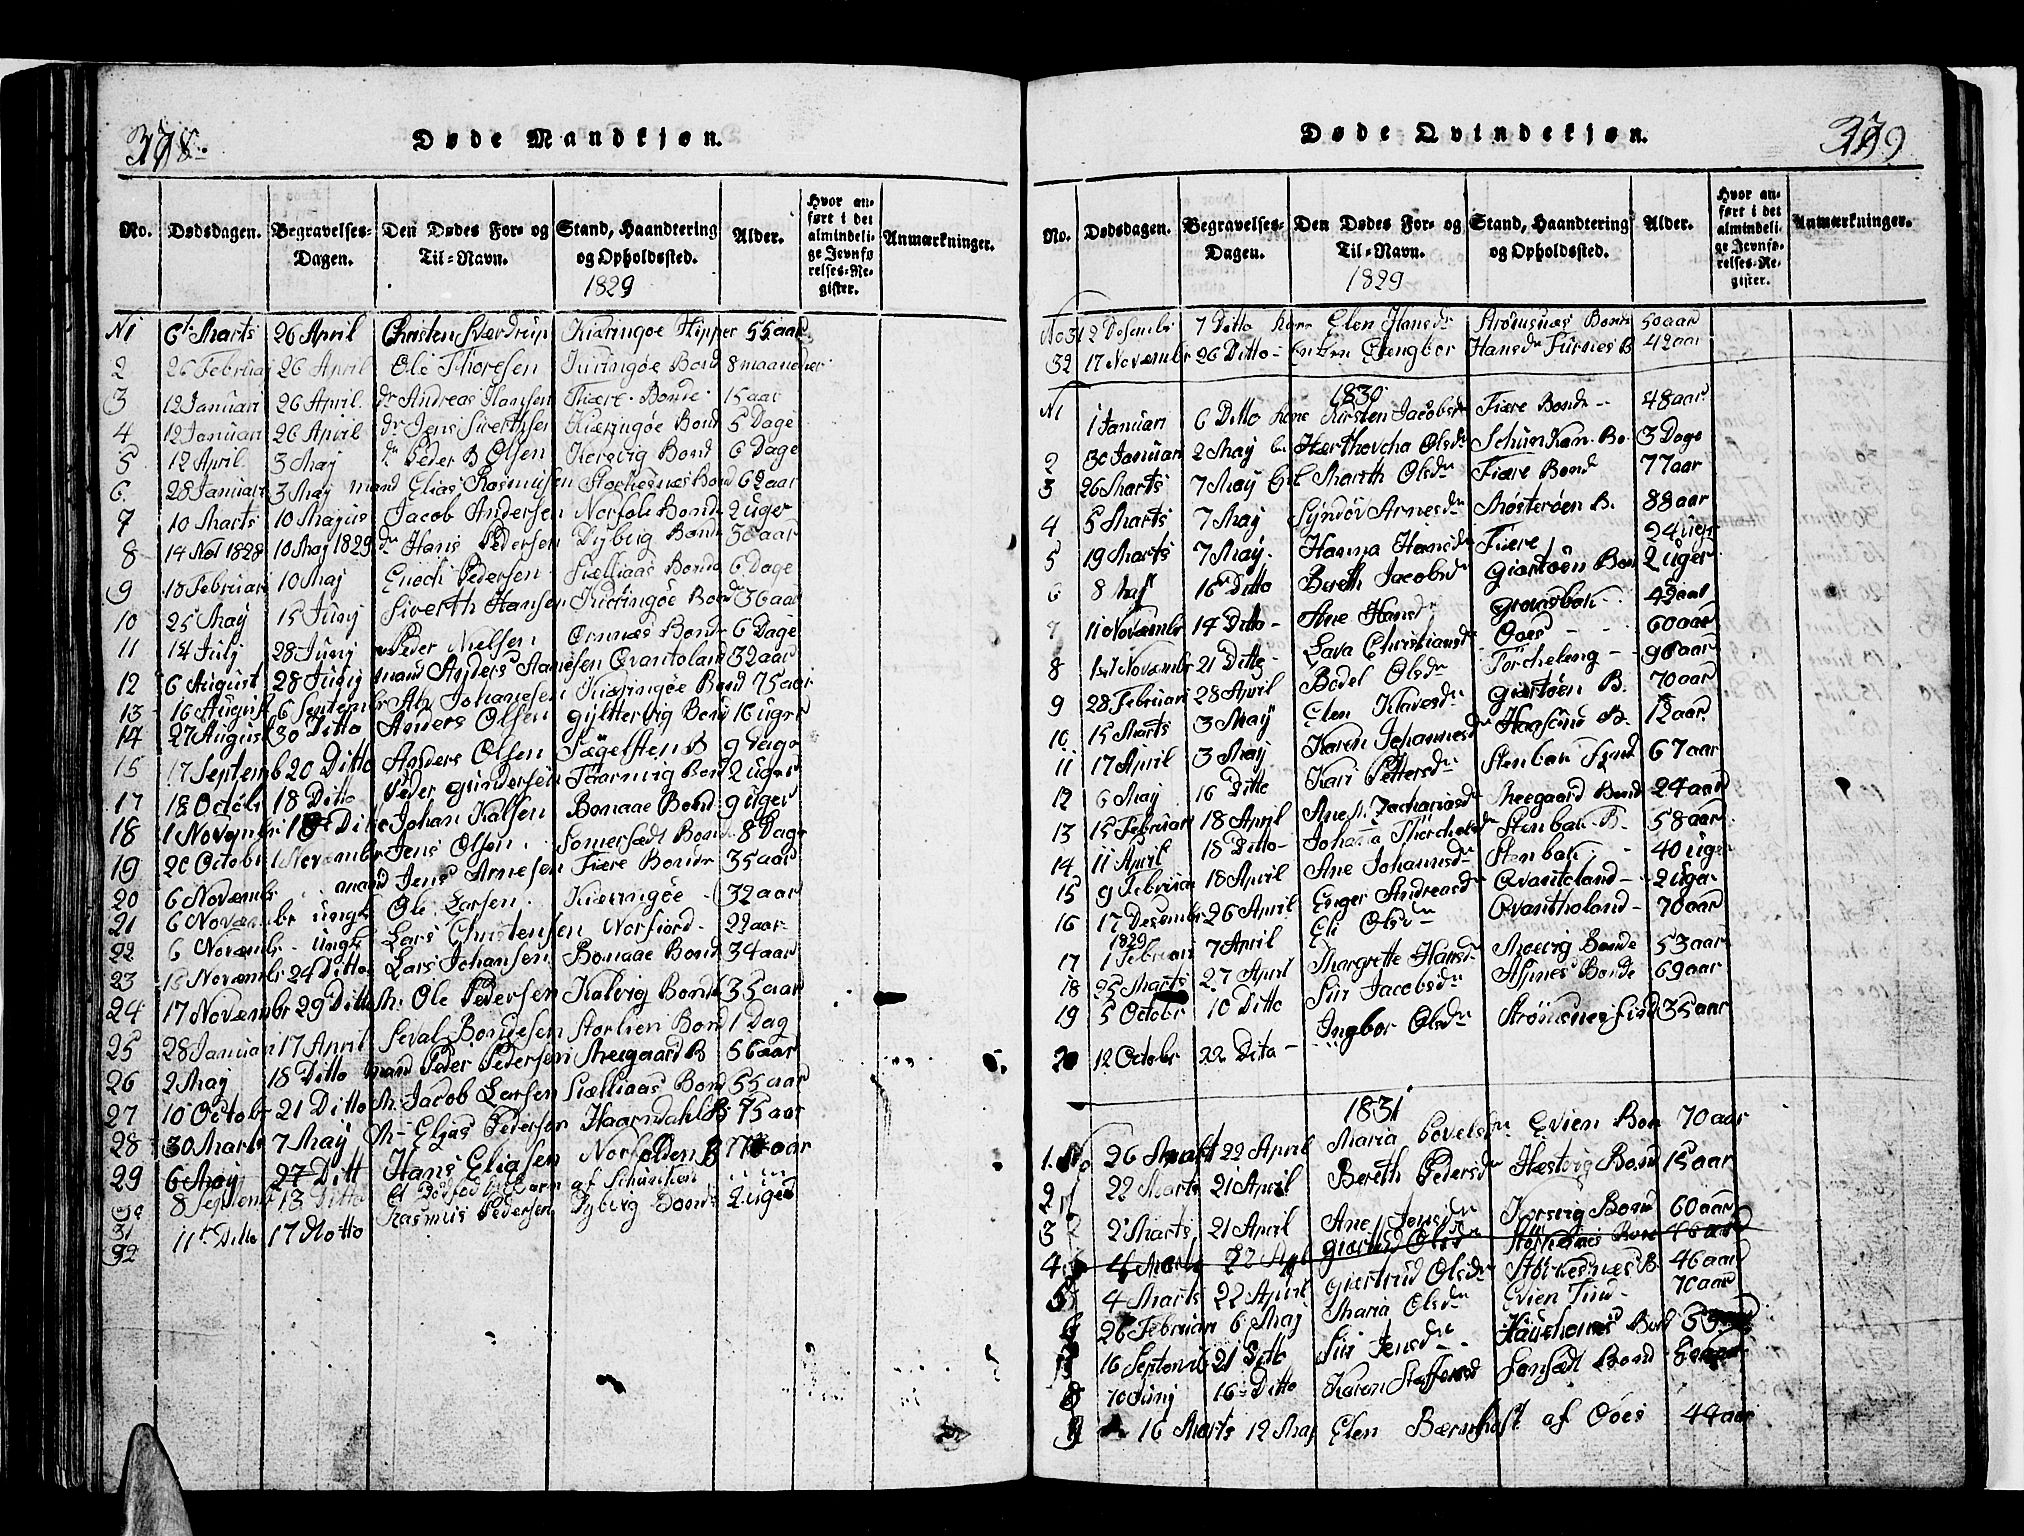 378.
Døde Mandkjøn.
No.
Dødsdagen.
Begravelses-Dagen.
Den Dødes For- og Til-Navn.
Stand, Haandtering og Opholdssted.
Alder.
Hvor anført i det almindelige Jevnførelses-Register.
Anmærkninger.
1829
N1 6t Marts 26 April Christen Sverdrup Kiæringøe Hipper 55 aar
2 26 Februar 26 April Ole Thoresen Kiæringøe Bond 8 maaneder
3 12 Januari 26 April dr Andreas Hansen Fiære Bonde 15 aar
4 12 Januari 26 April dr Jens Siverthsen Kiæringøe Bond 5 Dage
5 12 April 3 Maj dr Peder B Olsen Kjervig Bond 6 Dage
6 28 Januari 3 Maj mand Elias Rasmusen Storkesnæs Bond 62 aar
7 10 Marts 10 Majus Jacob Andersen Norfole Bond 2 uger
8 14 Nov 1828 10 Maj 1829 dr Hans Pedersen Dyberg Bond 30 aar
9 18 Februari 10 Maj Enoch Pedersen Siælliaas Bond 6 Dage
10 25 Maj 15 Junij Siverth Hansen Kiæringøe Bond 36 aar
11 14 July 28 Junij Peder Nielsen Ornnæs Bond 6 Dage
12 6 August 28 Junij mand Anders Hansen Qvantoland 32 aar
13 16 August 6 Septembr Johannesen Kiæringøe Bond 75 aar
14 27 August 30 Ditto Anders Olsen Gyltervig Bond 16 uger
15 17 Septemb 20 Ditto Anders Olsen Sægelsten B 9 Dage
17 18 Octobr 18 Ditto Peder Gundersen Taarnvig Bond 2 uger
18 1 Novembr 1 Ditto Johan Kalsen Bonaae Bond 9 uger
19 20 Octobr 1 Novæmbr Jens Olsen Somersædt Bond 8 Dage
20 6 Novæmb mand Jens Arnesen Fiære Bonde 35 aar
21 6 Novæmbr ungk Ole Larsen Kiæringøe 32 aar
22 6 Novæmbr ungk Lars Christensen Norfiord 22 aar
23 16 Novæmbr 24 Ditto Lars Johansen Bonaae Bond 34 aar
24 17 Novæmbr 29 Ditto M. Ole Pedersen Kalvig Bond 35 aar
25 28 Januari 17 April Seval Bondesen Storlien Bond 1 Dag
26 2 Maj 18 Ditto mand Peder Pedersen Meegaard B 56 aar
27 10 Octobr 21 Ditto M. Jacob Larsen Siælliaas Bond 55 aar
28 30 Marts 7 Maj M- Elias Pedersen Haarndahl B 75 aar
29 6 Maj 27 Ditt Hans Eliasen Norfolden B aar
8 Septemb 13 Ditto Et Dødfød af
31 11t Ditto 17 Notto Rasmus Pedersen Dyberg Bond 2 uger
32
Døde Qvindekjøn.
379
No.
Dødsdagen.
Begravelses-Dagen.
Den Dødes For- og Til-Navn.
Stand, Haandtering og Opholdssted.
Alder.
Hvor anført i det almindelige Jevnførelses-Register.
Anmærkninger.
1829
No 31 2 Desembr 7 Ditto kone Elen Hansdr Strömsnæs Bond 50 aar
32 17 Novæmbr 26 Ditto Enken Elengbor Hansdr Furnæs B 42 aar
1830
N1 1 Januari 6 Ditto kone Kirsten Jacobsdr Fiære Bonde 48 aar
2 30 Januari 2 Maj Olsdr 3 Dage
3 26 Marts 7 Maj Marith Olsdr Fiære Bond 77 aar
4 5 Marts 7 Maj Syndöv Arnesdr Mösterøen B. 88 aar
5 19 Marts 7 Maj Hanna Hansdr Fiære 24 uger
6 8 Maj 16 Ditto Bereth Jacobsdr Giærtøen Bon 2 uger
7 11 Novæmbr 14 Ditto Ane Hansdr 42 aar
8 Novæmbr 21 Ditto Lava Christiansdr Öoes 60 aar
9 28 Februari 28 April Bodel Olsdr Törcheleng 96 aar
10 15 Marts 3 Maj Elen Klavesdr Giærtøen B. 70 aar
11 17 April 3 Maj Karen Johannesdr Haasund B. 12 aar
12 6 Maj 16 Ditto Kari Pettersdr Stenbak 67 aar
13 15 Februari 18 April Ane M. Zachariasdr Meegaard Bond 24 aar
14 11 April 18 Ditto Johana Thorchelsdr Stenbak B. 58 aar
15 9 Februar 18 April Ane Johannsdr Stenbak 40 uger
16 17 Desembr 1829 26 April Enger Andreasdr Qvantoland 2 uger
17 1 Februari 7 April Eli Olsdr Qvantholand 70 aar
18 25 Marts 27 April Margrette Hansdr Moevig Bonde 53 aar
19 5 Octobr 10 Ditto Siri Jacobsdr Asnes Bonde 69 aar
20 12 Octobr 22 Ditto Ingbor Olsdr 35 aar
1831
1. No 26 Mart 22 April Maria Povelsdr Evien Bon 70 aar
2 22 Marts 21 April Bereth Pedersdr Hæstvig Bond 15 aar
3 2 Marts 21 April Ane Jensdr Korsvig Bond 60 aar
4 4 Marts 22 Apl Giertrud Olsdr Storkesnæs Bon 46 aar
5 4 Marts 22 April Giertrud Olsdr Storkesnæs B. 46 aar
6 26 Februari 6 Maj Maria Olsdr Evien Find 70 aar
16 Septemb 21 Ditto Siri Jensdr Bond
8 10 Junij 16 Ditto Karen Staffensd Bond
9 16 Marts 12 Maj Elen Bærnholt af Öoes 44 aar